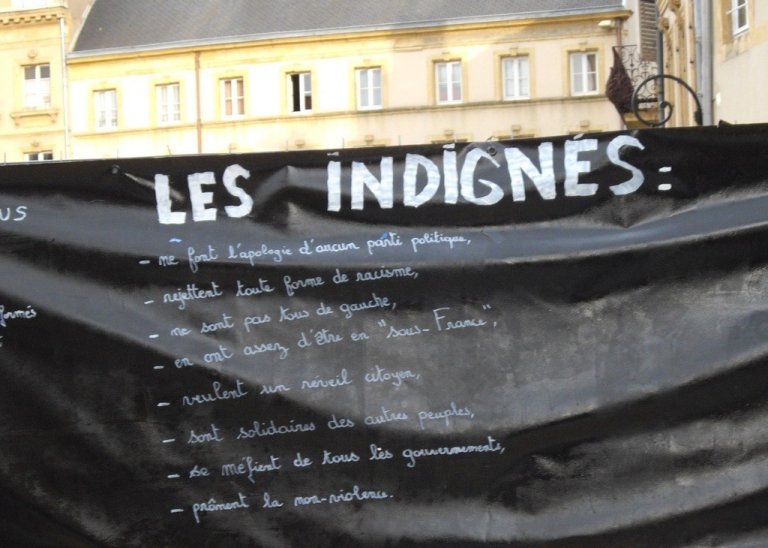 LES INDIGNÉS:
US
- ne font l'apologie d'aucun parti politique,
- rejettent toute forme de racisme,
- ne sont pas tous de gauche,
formés
- en ont assez d'être en "sous-France",
- veulent un réveil citoyen,
- sont solidaires des autres peuples,
- se méfient de tous les gouvernements,
- prônent la non-violence.